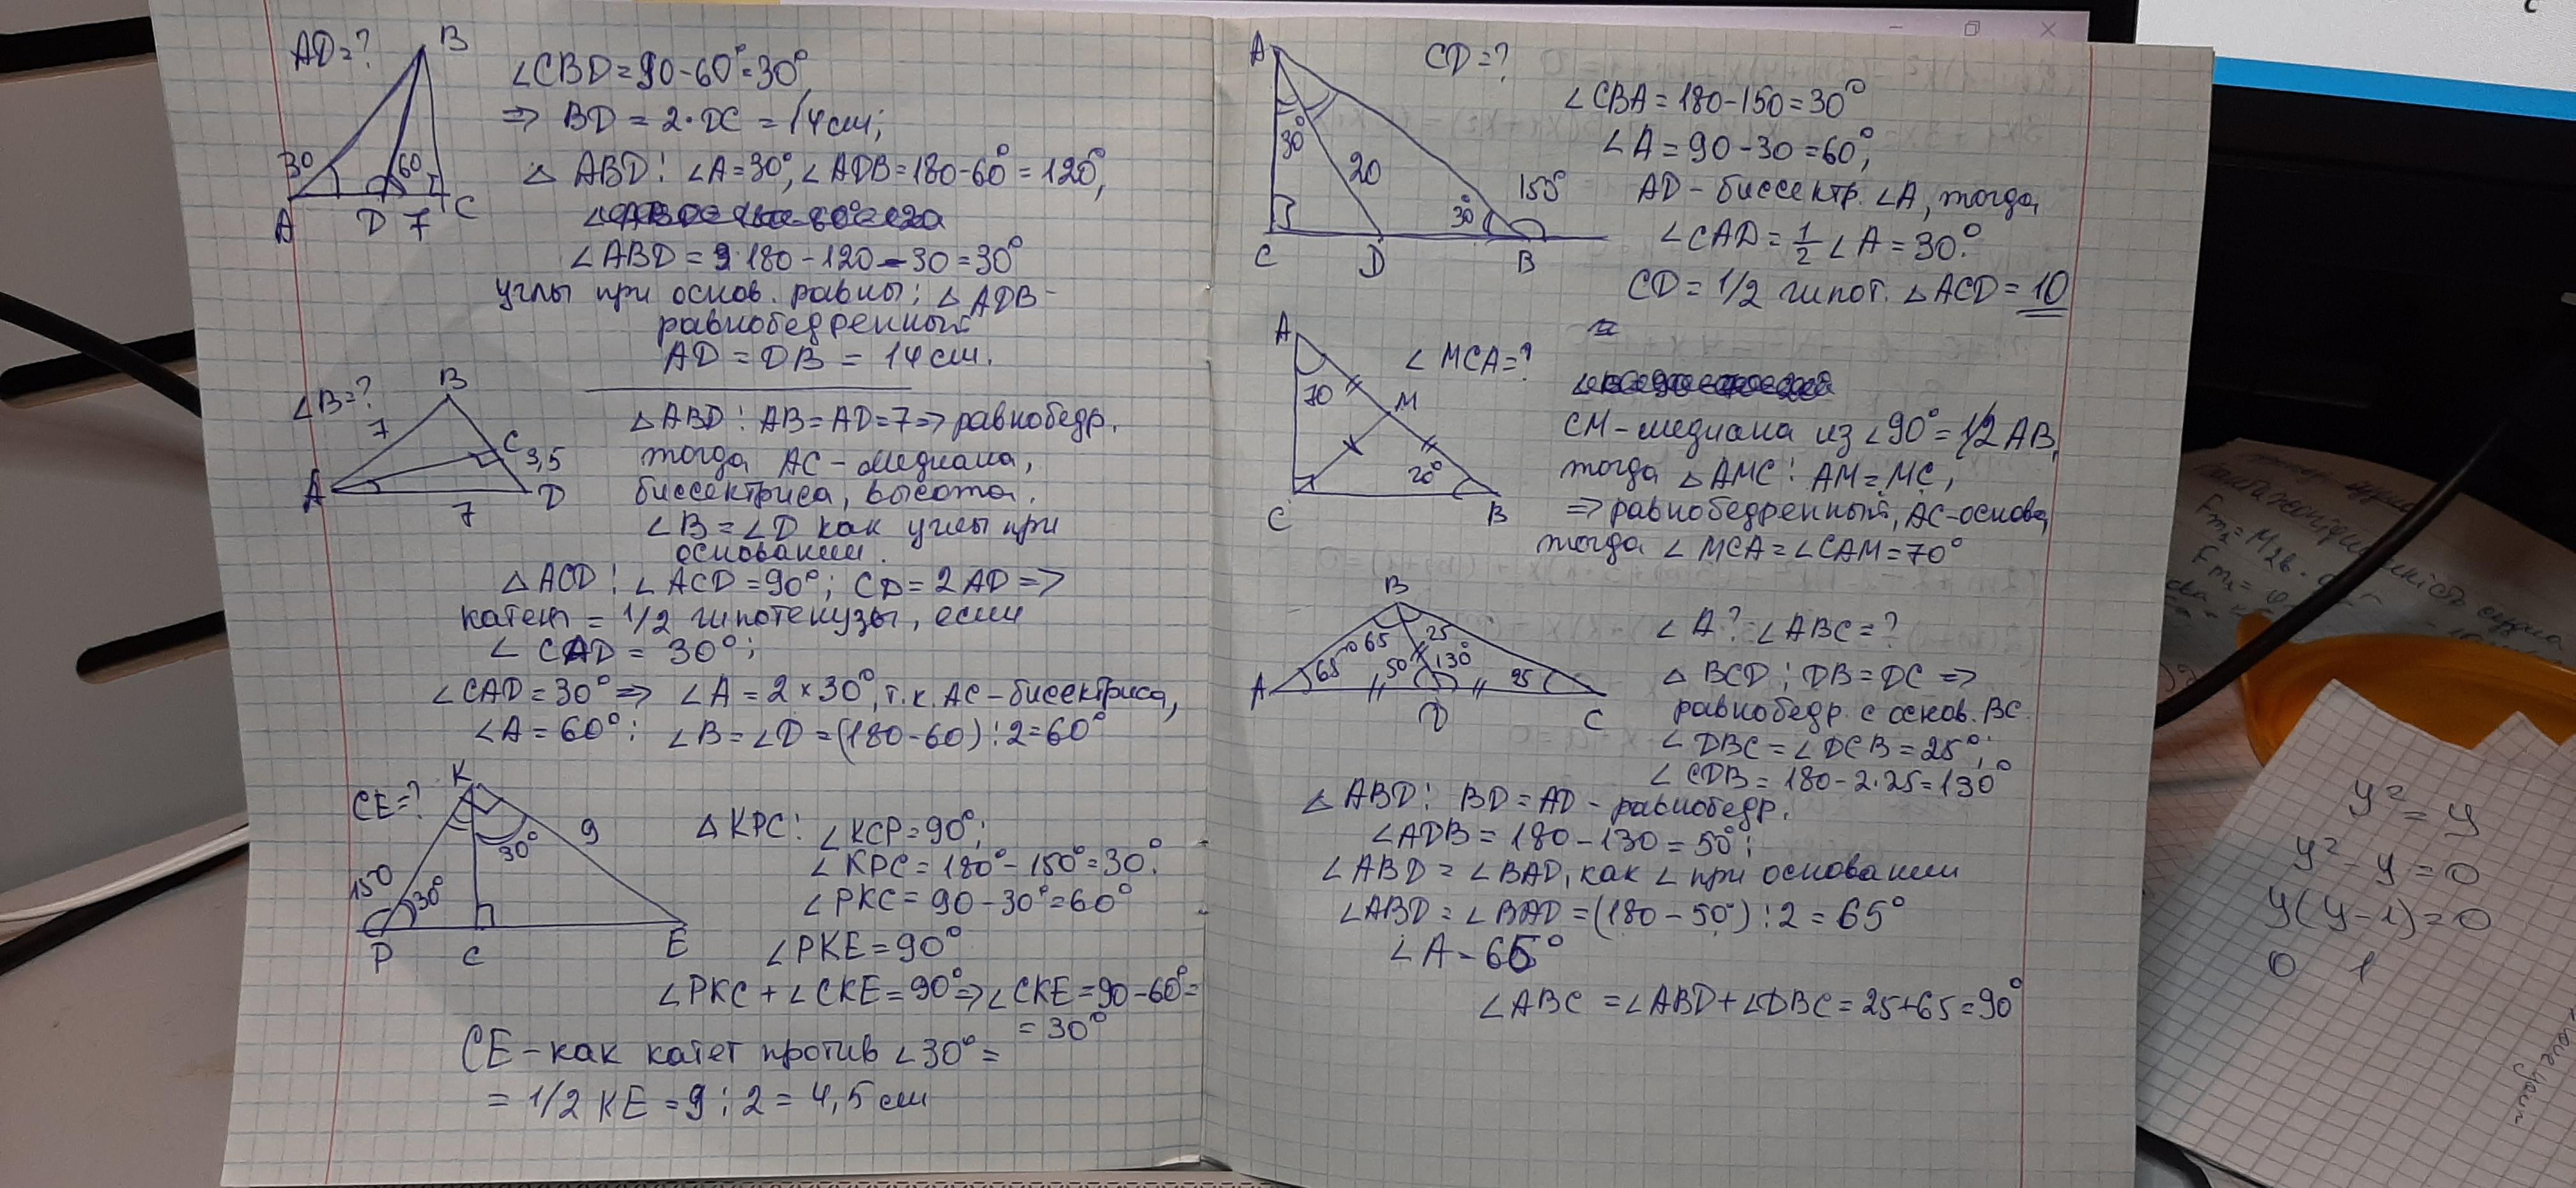 AD=?
B
30
60
A
D
7
C
∠CBD=90-60°=30°,
=> BD = 2·DC = 14см;
△ ABD: ∠A=30°, ∠ADB=180-60°=120°,
∠ABD = 180-120-30=30°
углы при основ. равны: △ ADB-
равнобедренный
AD = DB = 14 см.
∠B=?
B
7
C
3,5
A
7
D
△ABD: AB=AD=7=> равнобедр.
тогда AC-медиана,
биссектриса, высота.
∠B=∠D как углы при
основании.
△ACD: ∠ACD=90°; CD=2AD=>
катет = 1/2 гипотенузы, если
∠ CAD = 30°;
∠CAD=30°=> ∠A=2×30°, т.к. AC-бисектриса,
∠A=60°: ∠B=∠D=(180-60):2=60°
CE=?
K
30°
9
150
30°
P
C
E
△KPC: ∠KCP=90°;
∠KPC=180°-150°=30°.
∠PKC=90-30°=60°
∠PKE=90°
∠PKC+∠CKE=90°=>∠CKE=90-60°=
=30°
CE-как катет против ∠30°=
= 1/2 KE =9:2=4,5см
A
CD=?
30°
20
30°
150°
C
D
B
∠CBA=180-150=30°
∠A=90-30=60°,
AD-биссектр. ∠A, тогда
∠CAD=1/2 ∠A=30°.
CD=1/2 гипот. △ACD=10
A
∠MCA=?
70
M
20°
C
B
CM-медиана из ∠90°=1/2AB,
тогда △AMC: AM=MC,
=> равнобедренный, AC-основа,
тогда ∠MCA=∠CAM=70°
B
65
25
65
50
130°
25
A
D
C
∠A? ∠ABC=?
△ BCD: DB=DC =>
равнобедр. с основ. BC.
∠DBC=∠DCB=25°;
∠CDB=180-2·25=130°
△ABD: BD=AD-равнобедр.
∠ADB=180-130=50°;
∠ABD=∠BAD, как ∠ при основании
∠ABD=∠BAD=(180-50°):2=65°
∠A-65°
∠ABC =∠ABD+∠DBC=25+65=90°
y²=y
y²-y=0
y(y-1)=0
0 1